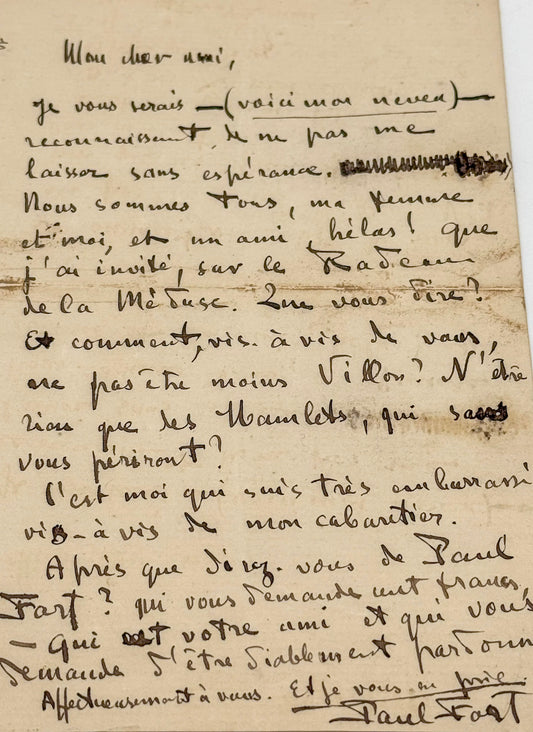 Mon cher ami,
Je vous serais — (voici mon neveu) —
reconnaissant de ne pas me
laisser sans espérance.
Nous sommes tous, ma femme
et moi, et un ami hélas! que
j'ai invité, sur le Radeau
de la Méduse. Que vous dire?
Et comment, vis-à-vis de vous,
ne pas être moins Villon? N'être
rien que des Hamlets, qui sans
vous périront?
C'est moi qui suis très embarrassé
vis-à-vis de mon cabaretier.
Après que direz-vous de Paul
Fort? qui vous demande cent francs,
— qui est votre ami et qui vous
demande d'être diablement pardonn
Affectueusement à vous. Et je vous en prie.
Paul Fort